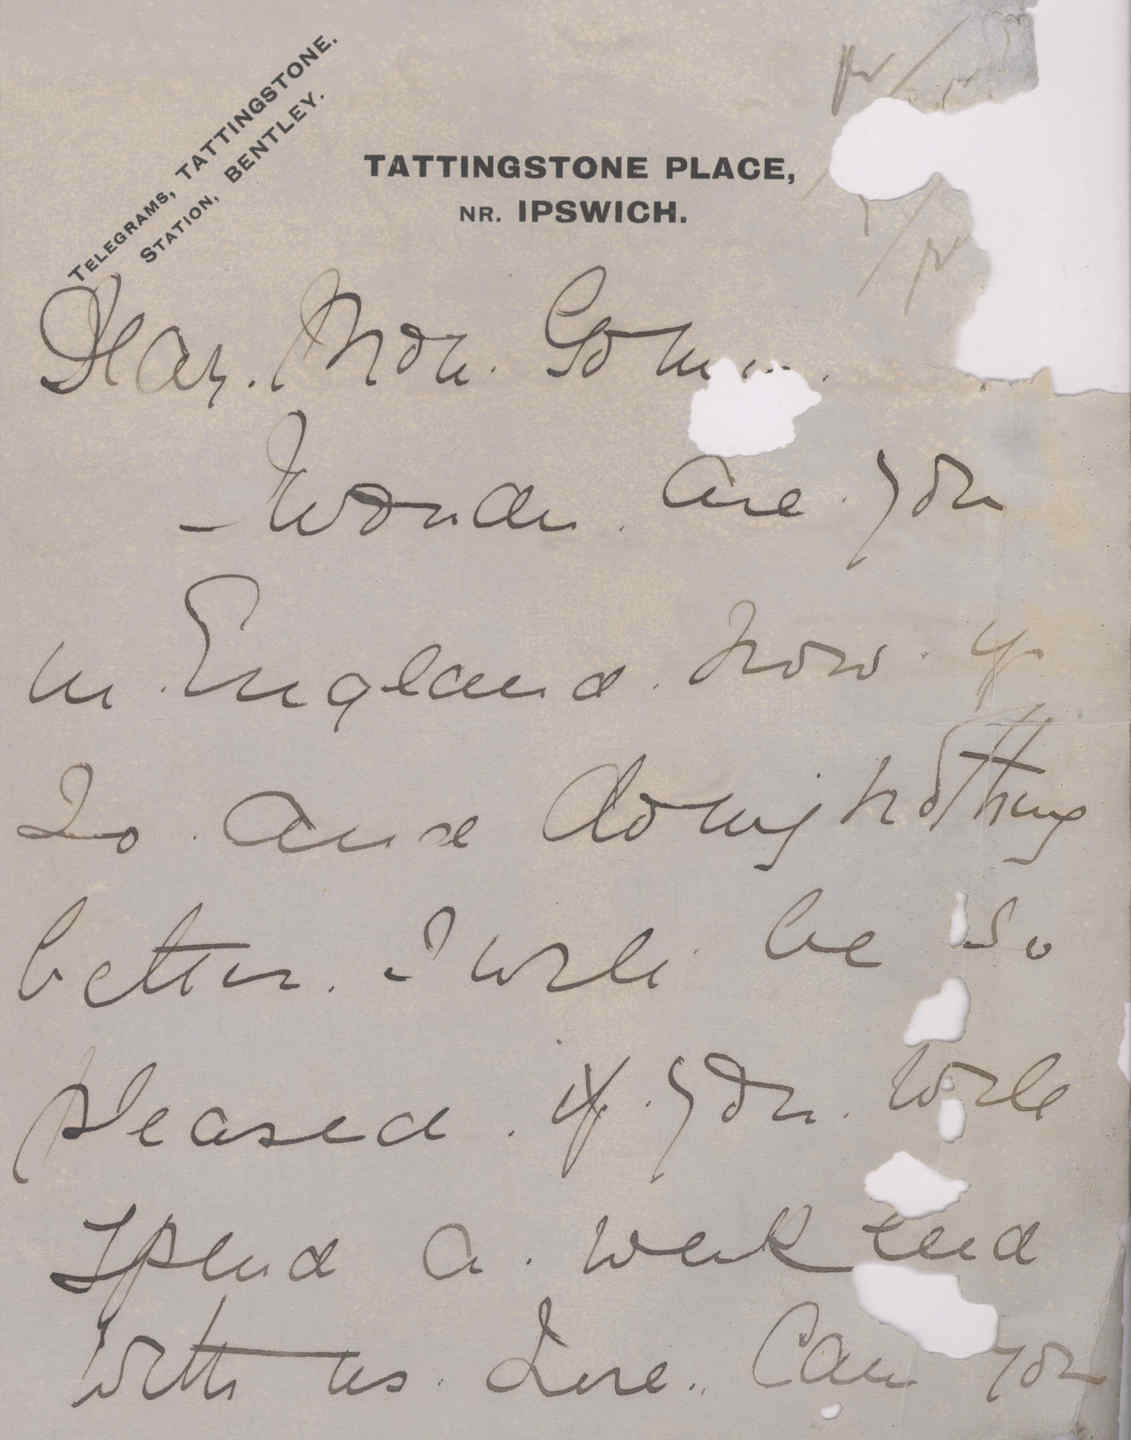 TELEGRAMS, TATTINGSTONE.
STATION, BENTLEY.
TATTINGSTONE PLACE,
NR. IPSWICH.
Dear
Wonder are you
in England now if
so and doing nothing
better. I wld be so
pleased if you wld
spend a week end
with us here. Can you